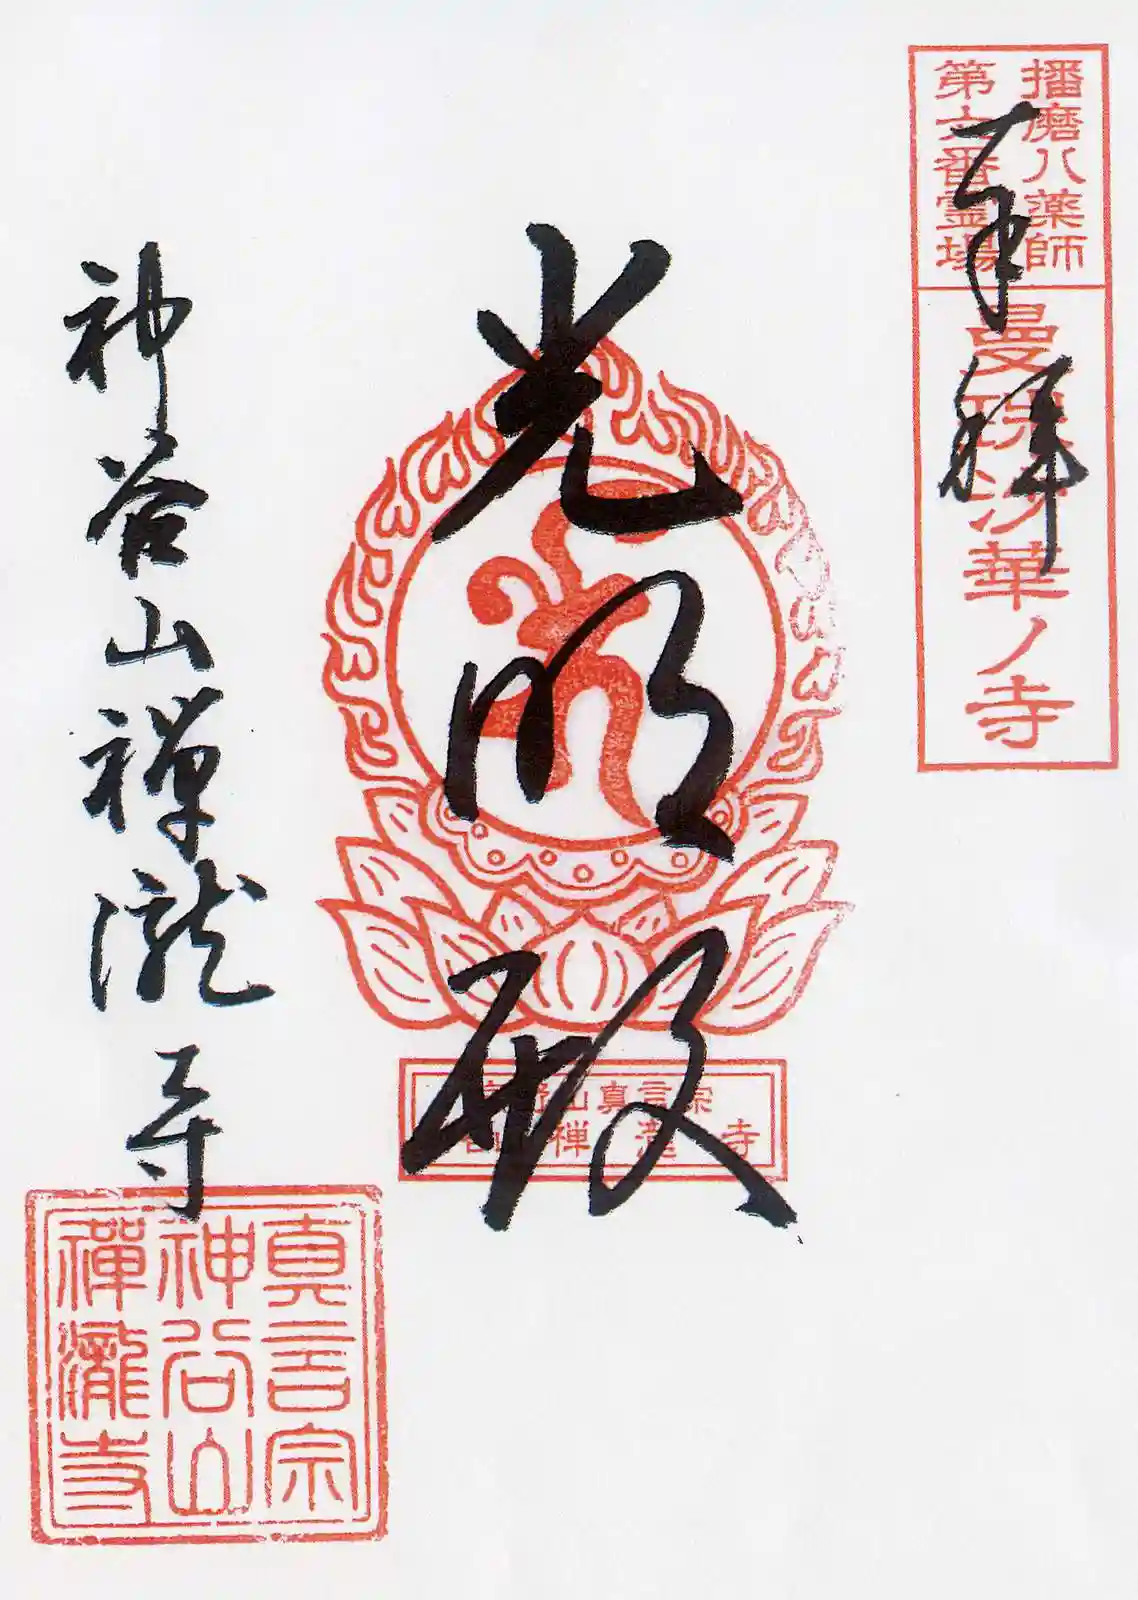 播磨八薬師
第六番霊場
曼珠沙華ノ寺
奉拝
光明殿
真言宗
禅瀧寺
神谷山禅瀧寺
真言宗
神谷山
禪瀧寺